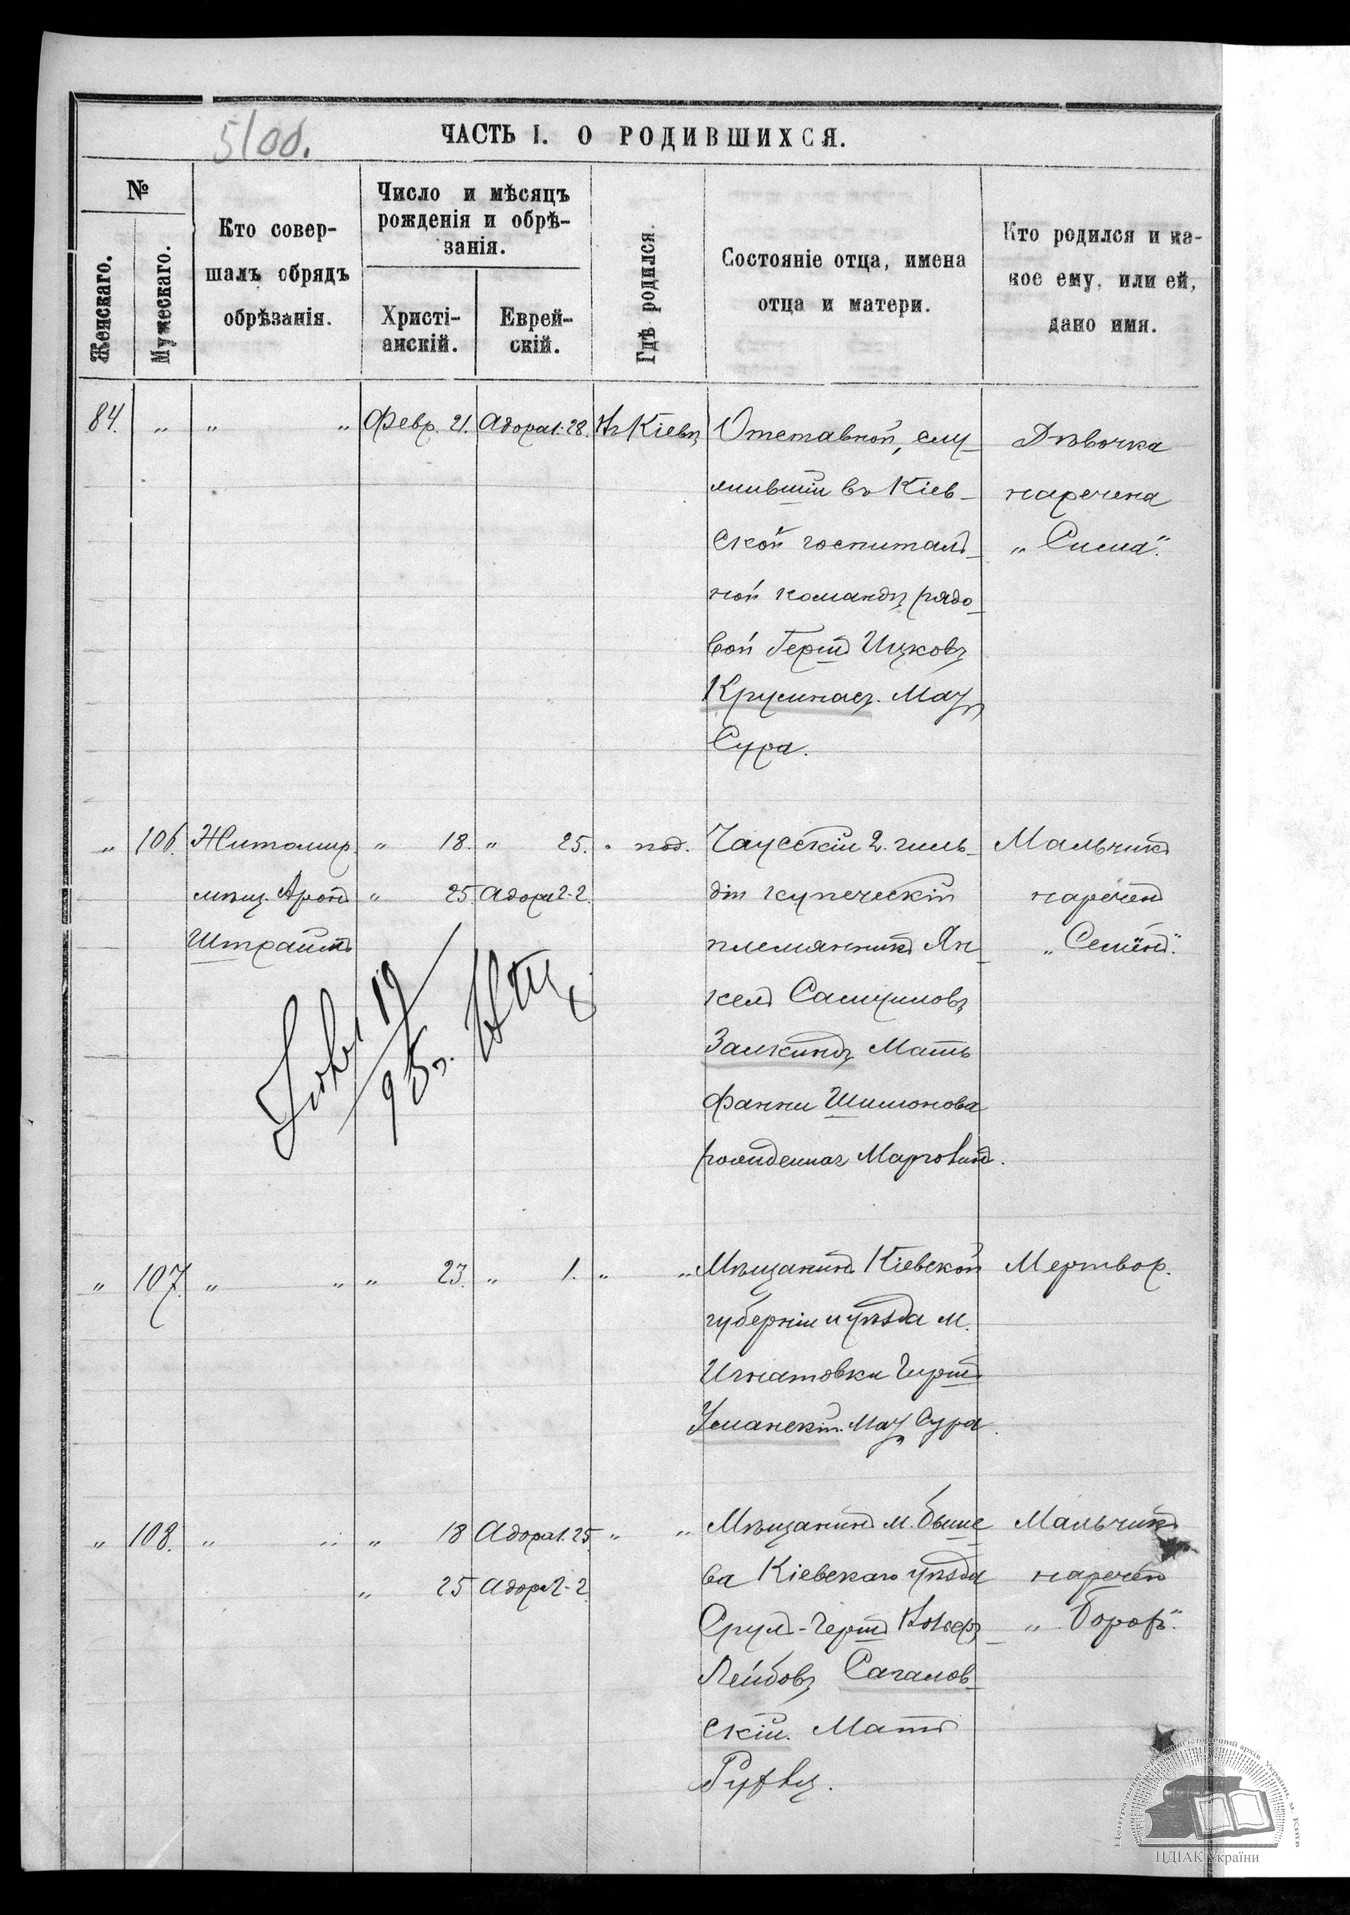 5/об.
ЧАСТЬ I. О РОДИВШИХСЯ.
№
Женскаго.
Мужескаго.
Кто совер-
шалъ обрядъ
обрѣзанія.
Число и мѣсяцъ
рожденія и обрѣ-
занія.
Христі-
анскій.
Еврей-
скій.
Гдѣ родился.
Состояніе отца, имена
отца и матери.
Кто родился и ка-
кое ему, или ей,
дано имя.
84. " " " Февр. 21. Адора 1. 28. Въ Кіевѣ
Отставной, слу-
жившій въ Кіев-
ской госпиталь-
ной командѣ рядо-
вой Гершъ Ицковъ
Крумкасъ. Мать
Сура.
Дѣвочка
наречена
„Сима".
" 106. Житомир. " 18. " 25. " под.
мѣщ. Аронъ " 25 Адора 2-2.
Штраимъ
95г.
Чаусскій 2. гиль-
діи купеческій
племянникъ Ян-
кель Самуиловъ
Залкиндъ. Мать
Фанни Шимонова
рожденная
Мальчикъ
нареченъ
„Семёнъ".
" 107. " " " 23. " 1. " "
Мѣщанинъ Кіевской
губерніи и уѣзда м.
Игнатовки Гершъ
Уманскій. Мать Сура.
Мертвор.
" 108. " " " 18 Адора 1. 25. " "
" 25 Адора 2-2
Мѣщанинъ м. Быше
ва Кіевскаго уѣзда
Срулъ-Гершъ
Лейбовъ Сагалов-
скій. Мать
Мальчикъ
нареченъ
ЦДІАК України